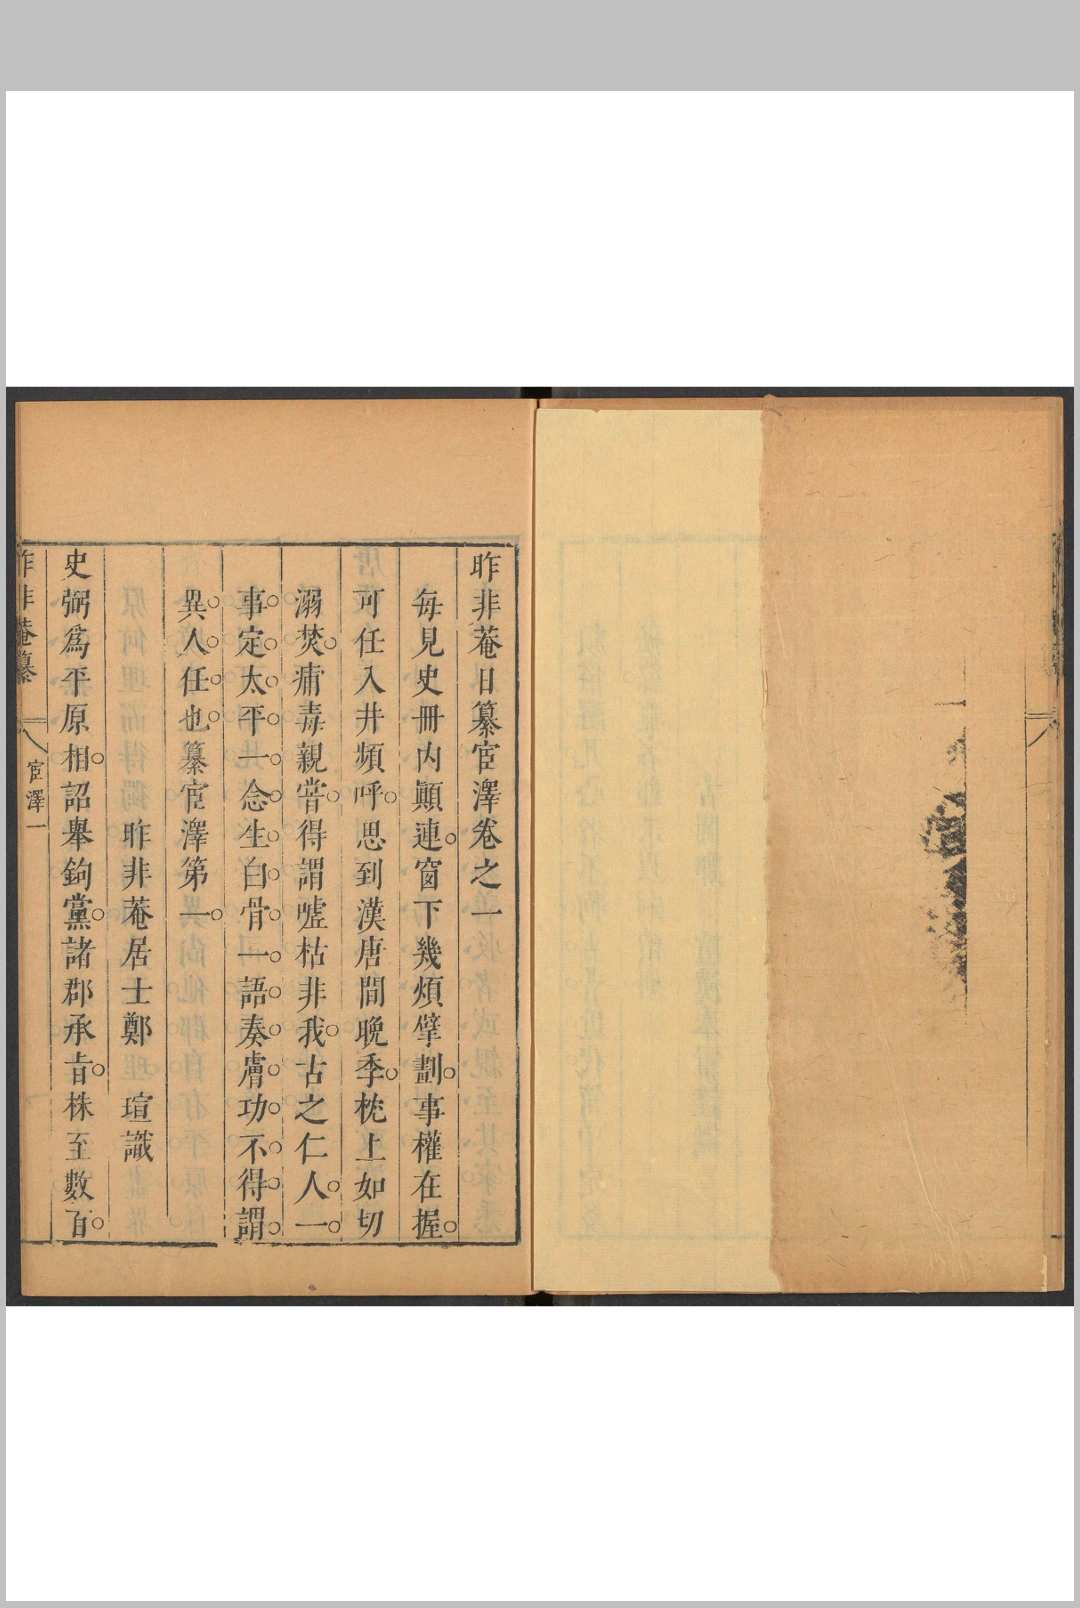 昨非菴日纂宦澤卷之一
每見史冊内顛連窗下幾煩擘劃事權在握
可任入井頻呼思到漢唐間晚季枕上如切
溺焚痛毒親嘗得謂噓枯非我古之仁人一
事定太平一念生白骨一語奏膚功不得謂
異人任也纂宦澤第一
昨非菴居士鄭 瑄識
史弼為平原相詔舉鉤黨諸郡承旨株至數百
昨非菴纂
宦澤一